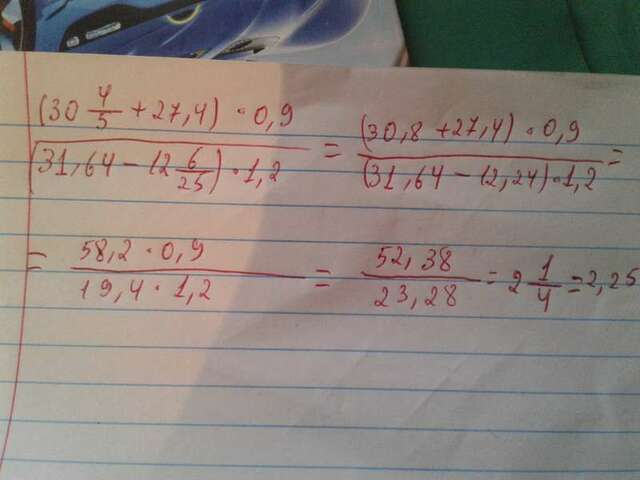 (30 4/5 + 27,4) · 0,9 / (31,64 − 12 6/25) · 1,2 = (30,8 + 27,4) · 0,9 / (31,64 − 12,24) · 1,2 =
= 58,2 · 0,9 / 19,4 · 1,2 = 52,38 / 23,28 = 2 1/4 = 2,25